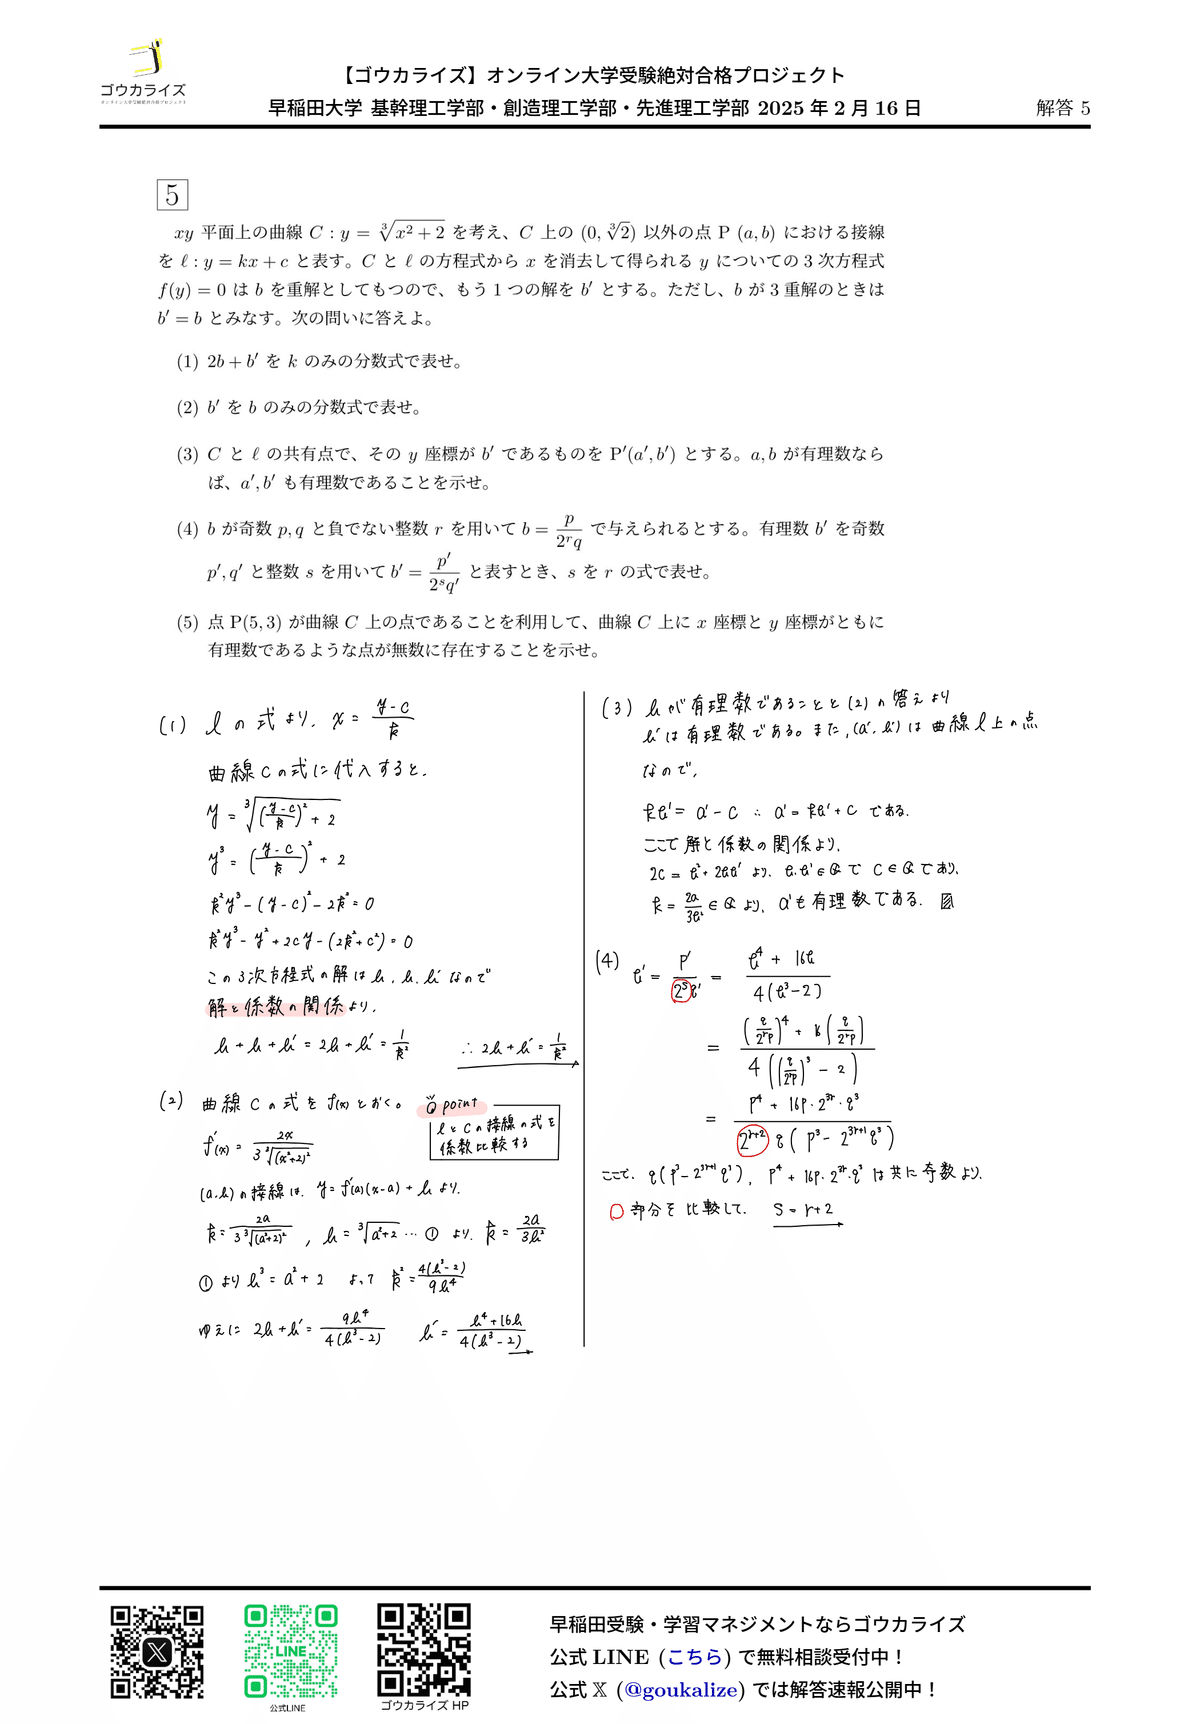 ゴウカライズ
オンライン大学受験絶対合格プロジェクト
【ゴウカライズ】オンライン大学受験絶対合格プロジェクト
早稲田大学 基幹理工学部・創造理工学部・先進理工学部 2025 年 2 月 16 日
解答 5
5
xy 平面上の曲線 C : y = ∛(x²+2) を考え、C 上の (0, ∛2) 以外の点 P (a, b) における接線
を ℓ : y = kx + c と表す。C と ℓ の方程式から x を消去して得られる y についての 3 次方程式
f(y) = 0 は b を重解としてもつので、もう 1 つの解を b′ とする。ただし、b が 3 重解のときは
b′ = b とみなす。次の問いに答えよ。
(1) 2b + b′ を k のみの分数式で表せ。
(2) b′ を b のみの分数式で表せ。
(3) C と ℓ の共有点で、その y 座標が b′ であるものを P′(a′, b′) とする。a, b が有理数なら
ば、a′, b′ も有理数であることを示せ。
(4) b が奇数 p, q と負でない整数 r を用いて b = p/(2^r q) で与えられるとする。有理数 b′ を奇数
p′, q′ と整数 s を用いて b′ = p′/(2^s q′) と表すとき、s を r の式で表せ。
(5) 点 P(5, 3) が曲線 C 上の点であることを利用して、曲線 C 上に x 座標と y 座標がともに
有理数であるような点が無数に存在することを示せ。
(1) ℓ の式より、x = (y-c)/k
曲線Cの式に代入すると、
y = ∛(((y-c)/k)² + 2)
y³ = ((y-c)/k)² + 2
k²y³ - (y-c)² - 2k² = 0
k²y³ - y² + 2cy - (2k²+c²) = 0
この3次方程式の解は b, b, b′ なので
解と係数の関係より、
b + b + b′ = 2b + b′ = 1/k² ∴ 2b + b′ = 1/k²
(2) 曲線Cの式を f(x) とおく。
point
ℓとCの接線の式を
係数比較する
f′(x) = 2x/(3∛(x²+2)²)
(a, b) の接線は、y = f′(a)(x-a) + b より、
k = 2a/(3∛(a²+2)²) , b = ∛(a²+2) … ① より、k = 2a/(3b²)
① より b³ = a² + 2 よって k² = 4(b³-2)/(9b⁴)
ゆえに 2b + b′ = 9b⁴/(4(b³-2)) b′ = (b⁴+16b)/(4(b³-2))
(3) bが有理数であることと(2)の答えより
b′は有理数である。また、(a′, b′)は曲線ℓ上の点
なので、
kb′ = a′ - c ∴ a′ = kb′ + c である。
ここで解と係数の関係より、
2c = b² + 2bb′ より、b, b′ ∈ Q で c ∈ Q であり、
k = 2a/(3b²) ∈ Q より、a′も有理数である。
(4) b′ = p′/(2^s q′) = (b⁴ + 16b)/(4(b³-2))
= ((q/(2^r p))⁴ + 16(q/(2^r p)))/(4((q/(2^r p))³ - 2))
= (p⁴ + 16p·2^(3r)·q³)/(2^(r+2) q(p³ - 2^(3r+1) q³))
ここで、q(p³ - 2^(3r+1) q³), p⁴ + 16p·2^(3r)·q³ は共に奇数より、
○部分を比較して、 s = r+2
LINE
公式LINE
ゴウカライズ HP
早稲田受験・学習マネジメントならゴウカライズ
公式 LINE (こちら) で無料相談受付中！
公式 𝕏 (@goukalize) では解答速報公開中！